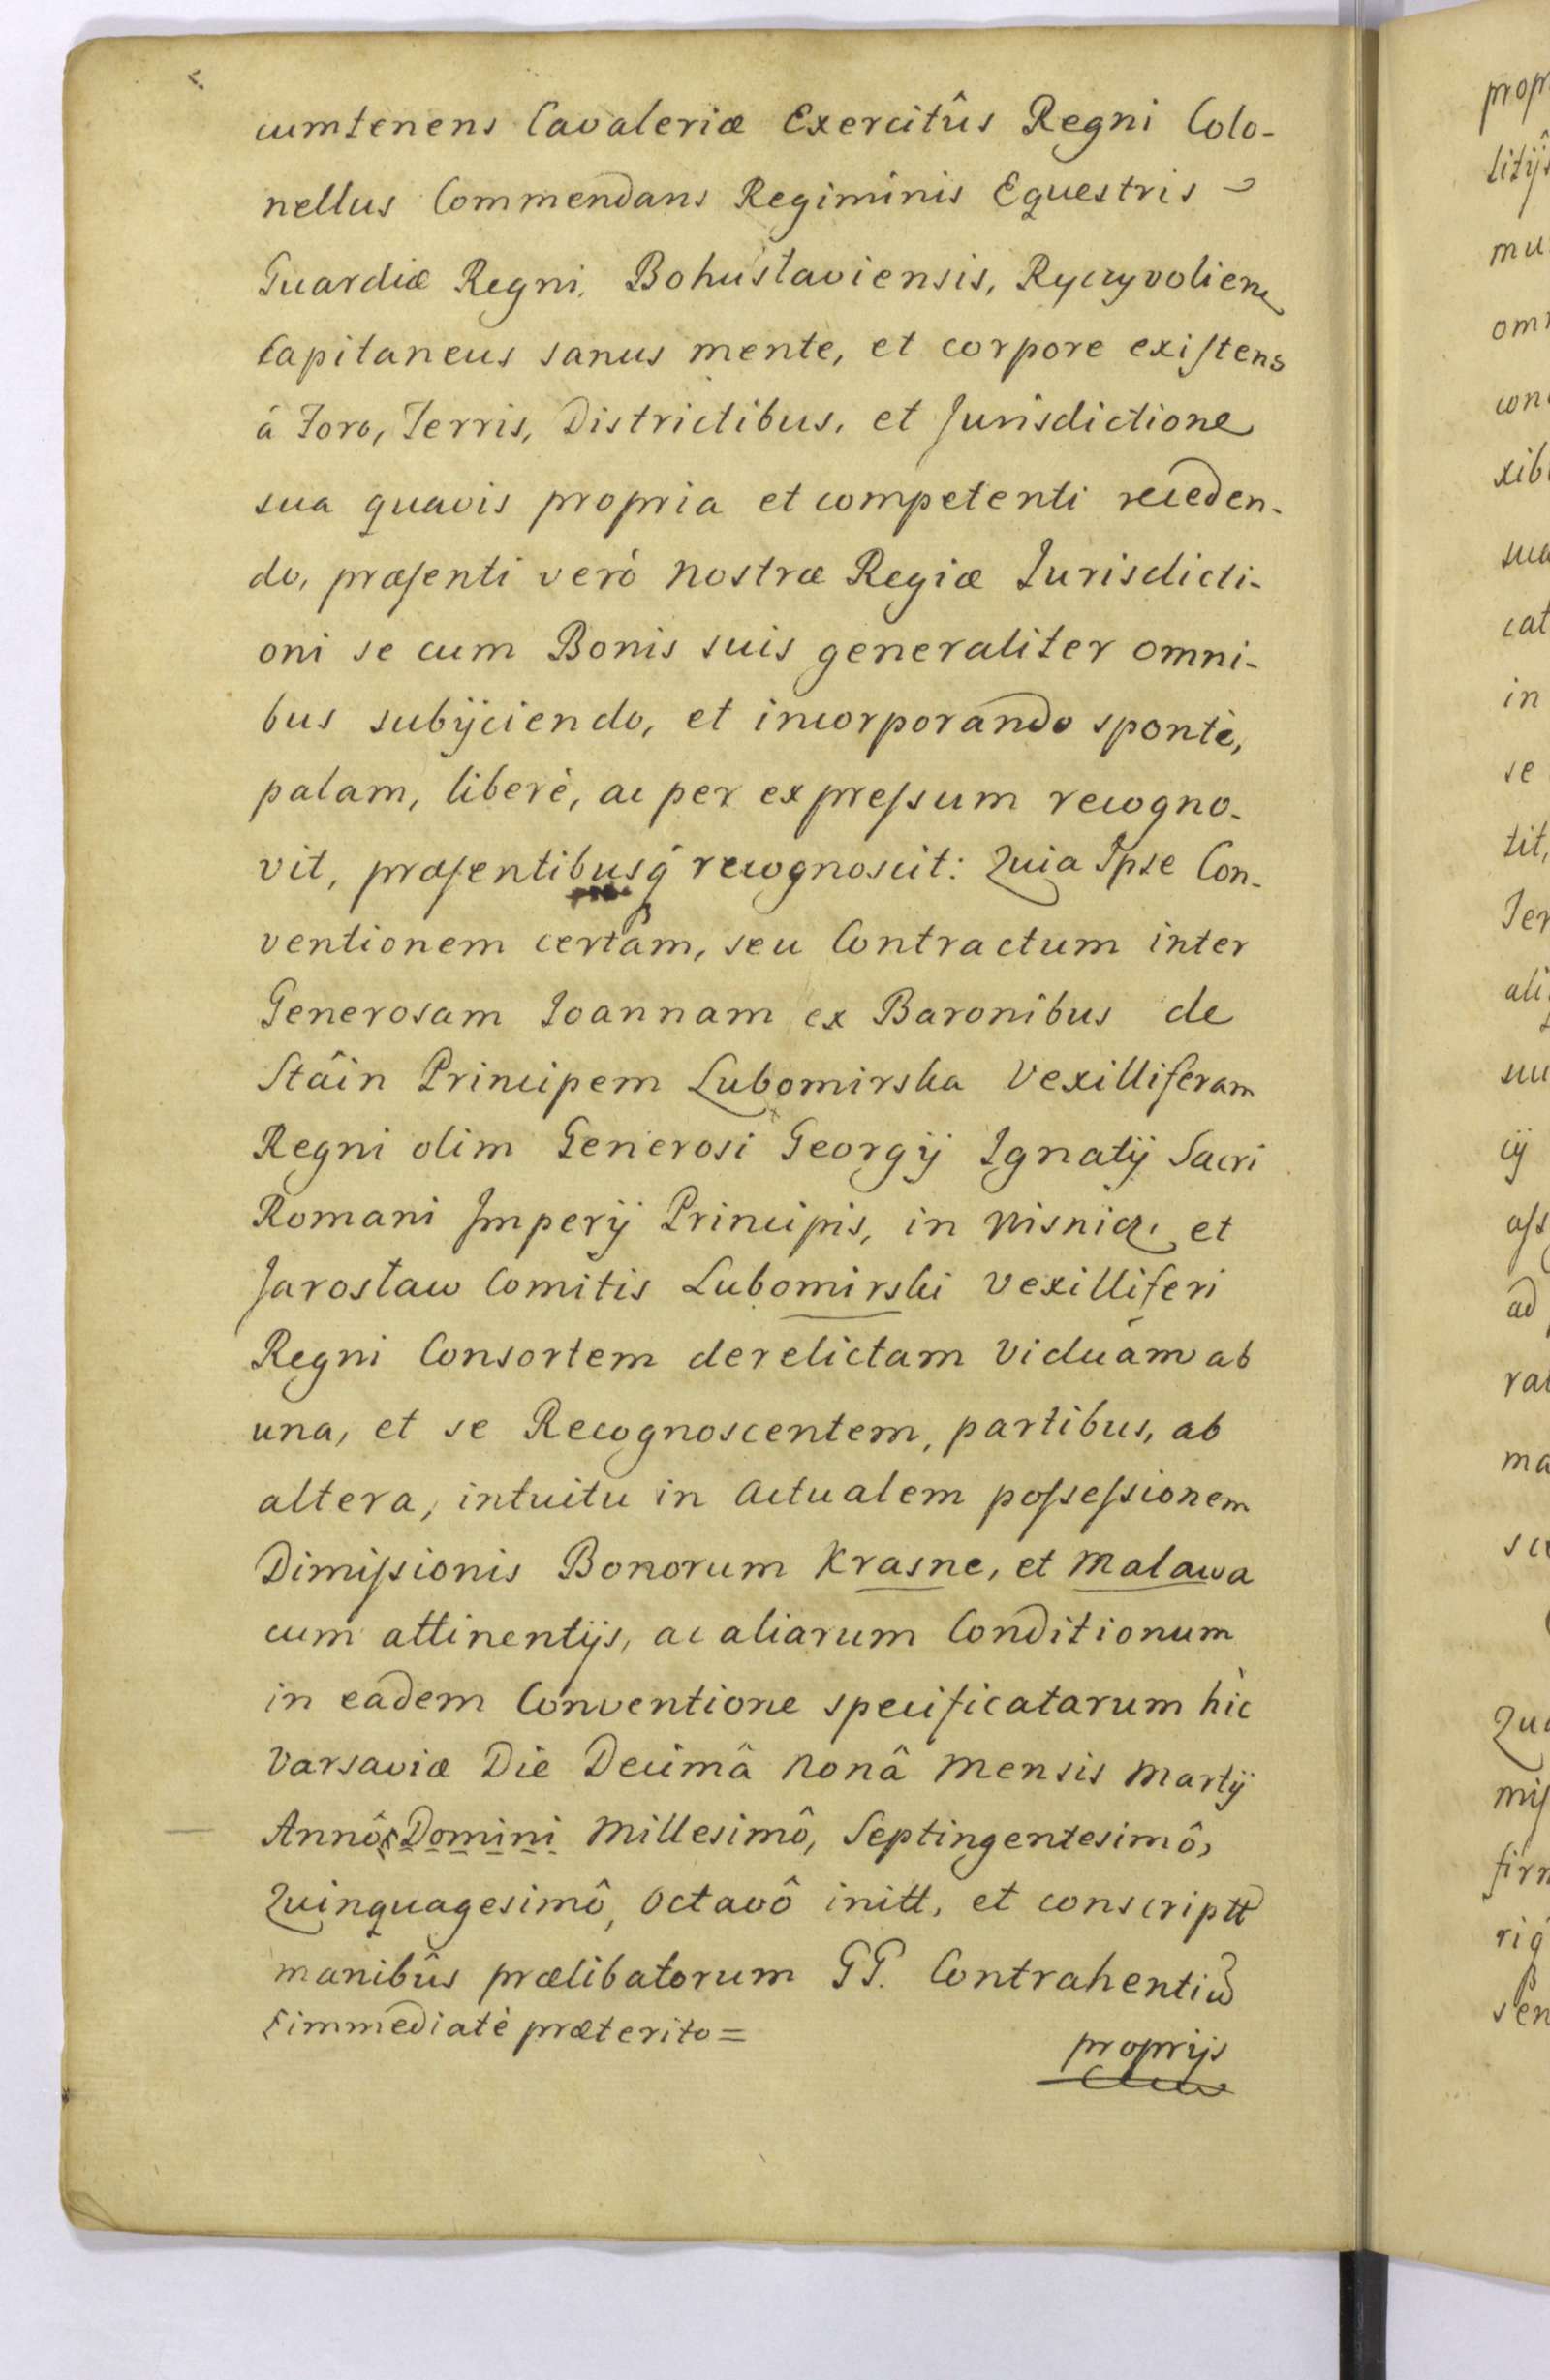 cumtenens Cavaleriæ Exercitûs Regni Colo-
nellus Commendans Regiminis Equestris
Guardiæ Regni, Bohuslaviensis, Ryczyvoliens
Capitaneus sanus mente, et corpore existens
à Foro, Terris, Districtibus, et Jurisdictione
sua quavis propria et competenti receden-
do, præsenti verò Nostræ Regiæ Jurisdicti-
oni se cum Bonis suis generaliter omni-
bus subijciendo, et incorporando spontè,
palam, liberè, ac per expressum recogno-
vit, præsentibusq́ recognoscit: Quia Ipse Con-
ventionem certam, seu Contractum inter
Generosam Joannam ex Baronibus de
Stâin Principem Lubomirska Vexilliferam
Regni olim Generosi Georgij Ignatij Sacri
Romani Imperij Principis, in Wisnicz, et
Jarosław Comitis Lubomirski Vexilliferi
Regni Consortem derelictam Viduam ab
una, et se Recognoscentem, partibus, ab
altera, intuitu in actualem possessionem
Dimissionis Bonorum Krasne, et Malawa
cum attinentijs, ac aliarum Conditionum
in eadem Conventione specificatarum hìc
Varsaviæ Die Decimâ nonâ Mensis Martij
Annô Domini Millesimô, Septingentesimô,
Quinquagesimô, Octavô initt, et conscriptt
manibûs prælibatorum GG. Contrahentiu
immediatè præterito =
proprijs
prop
litijs
mu
om
con
xib
sua
cat
in
se
tit,
Ter
ali
suu
cij
ass
ad
ral
ma
sce
Qua
mis
firm
riq́
sen